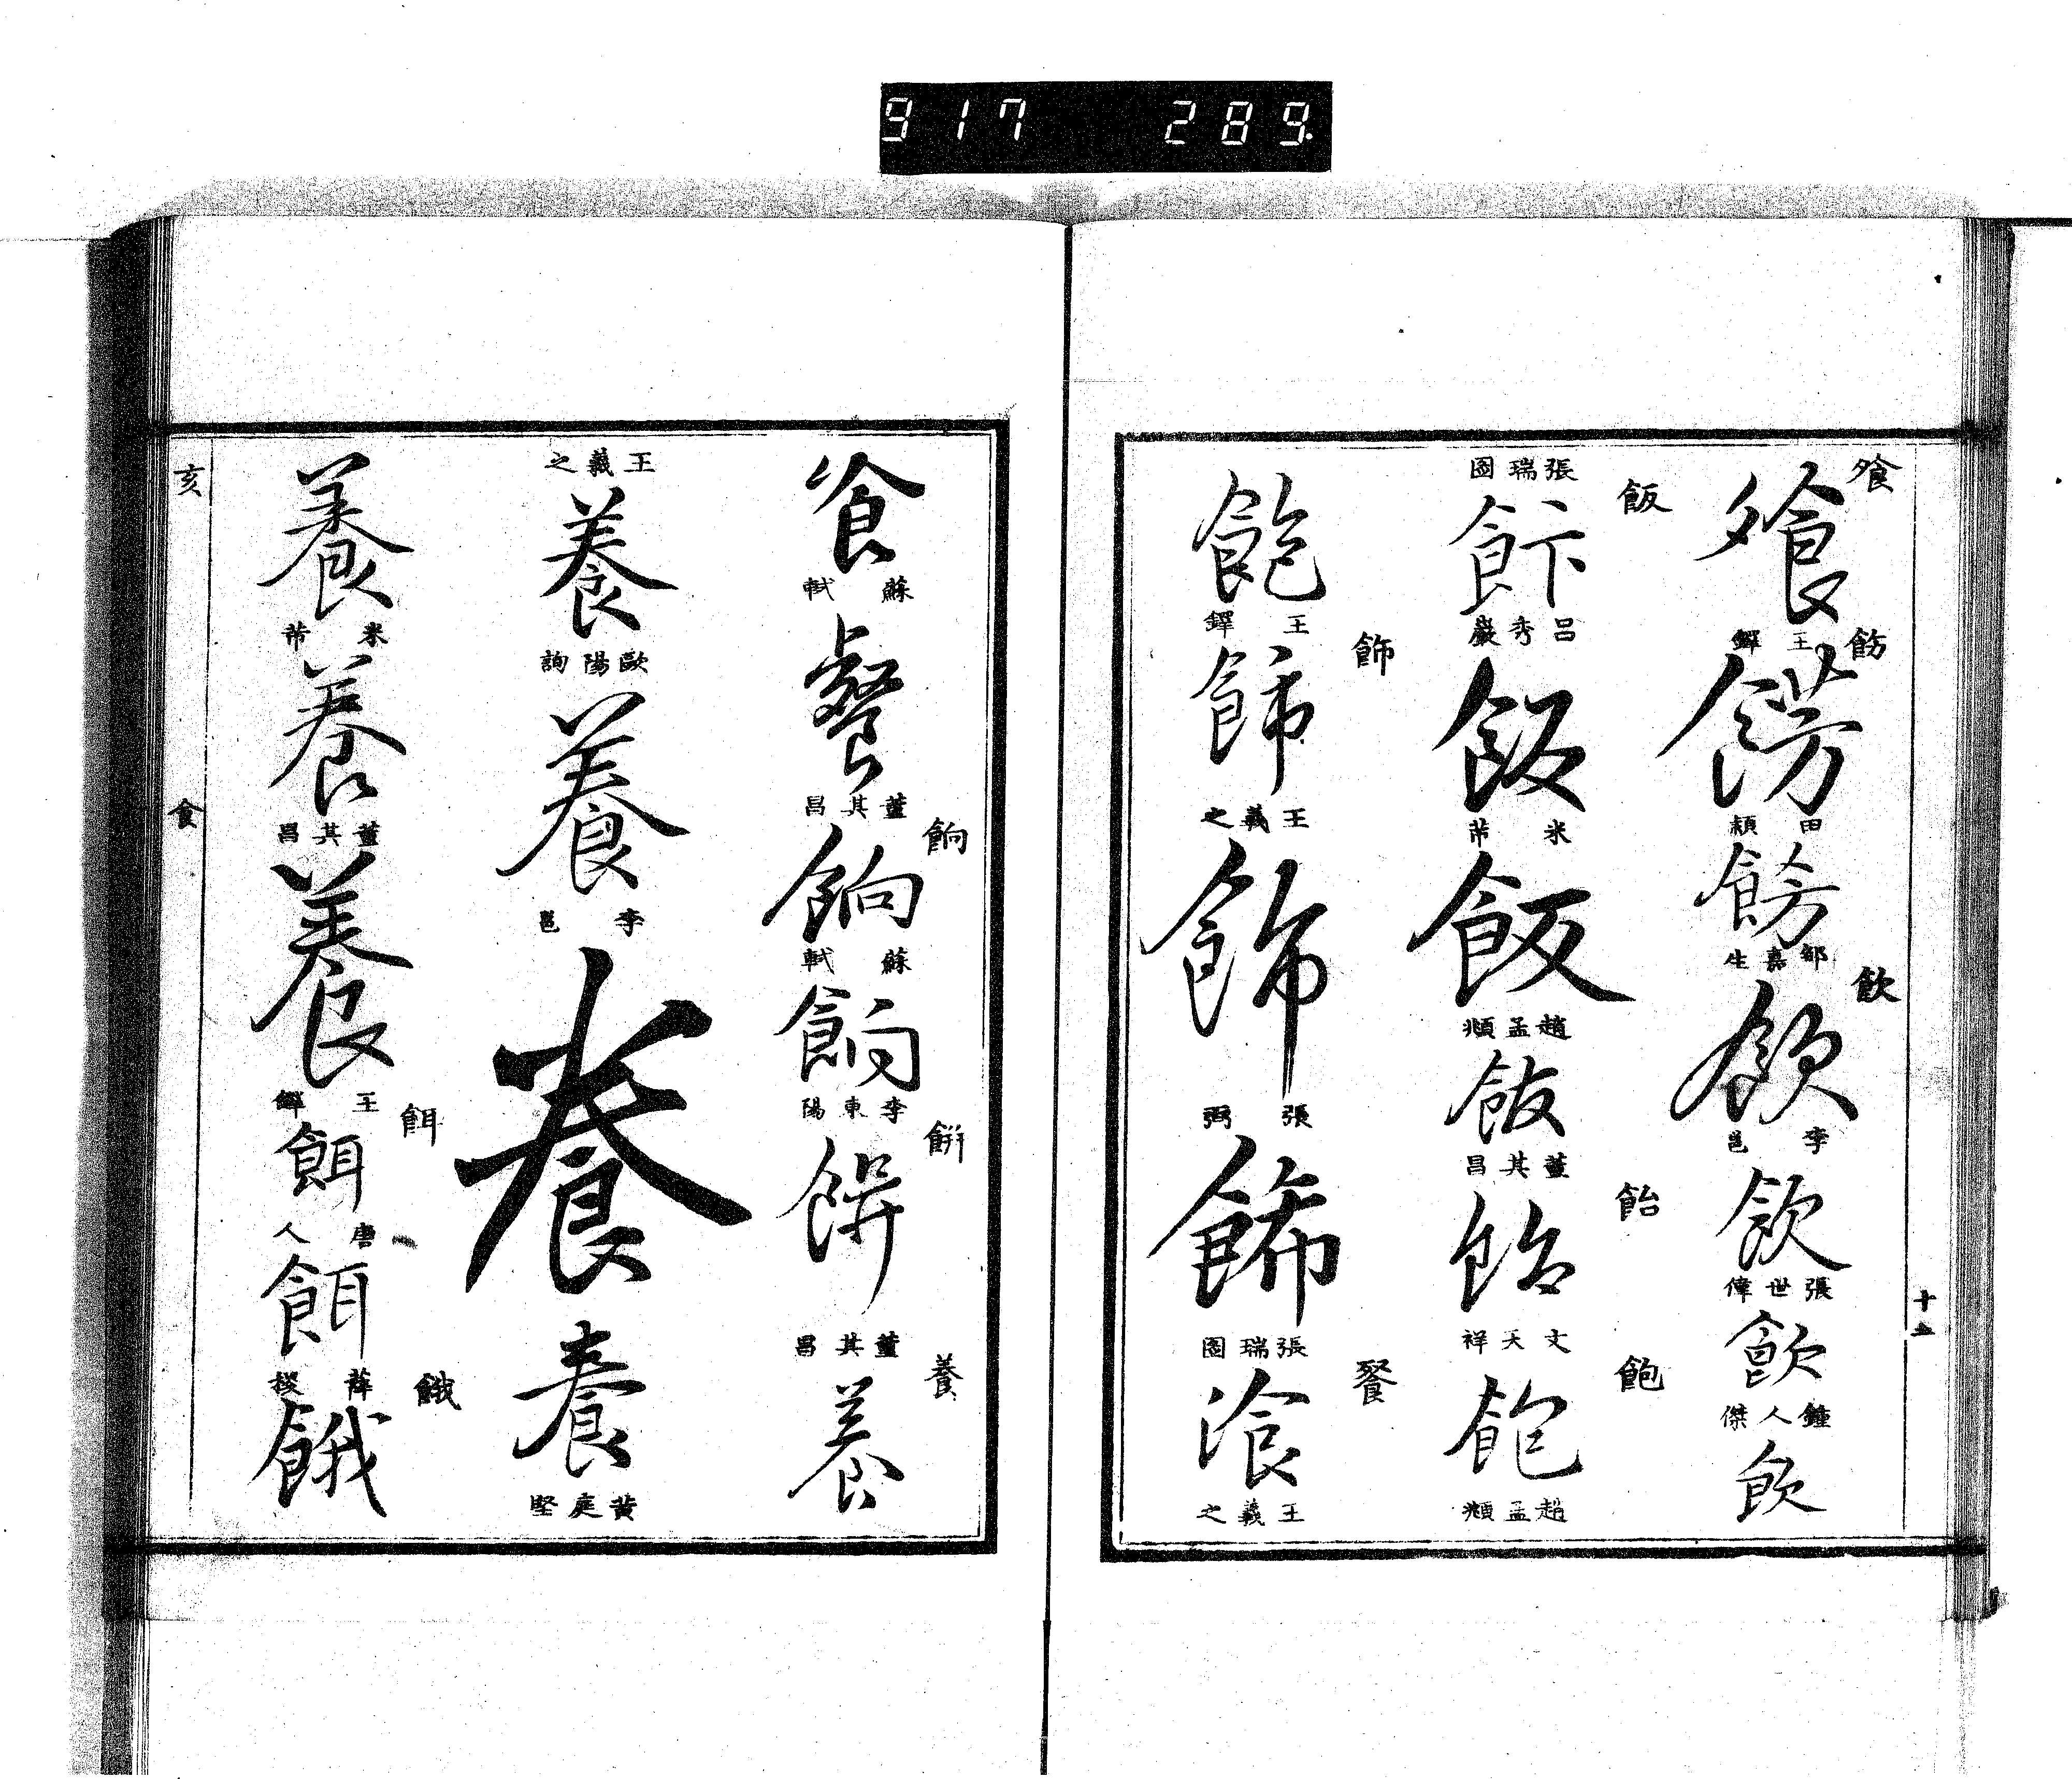 917 289
飧
飧
王鐸
飭
餝
田頴
餝
都嘉生
飲
飲
李邕
飲
張世偉
飲
鍾人傑
飲
十五
張瑞圖
飯
飰
呂秀巖
飯
米芾
飯
趙孟頫
飯
董其昌
飴
飴
文天祥
飽
飽
趙孟頫
飽
王鐸
飾
飾
王羲之
飾
張弼
餙
張瑞圖
餐
湌
王羲之
飡
蘇軾
餐
董其昌
餉
餉
蘇軾
餉
李東陽
餅
餅
董其昌
養
養
王羲之
養
歐陽詢
養
李邕
養
養
黃庭堅
養
米芾
養
董其昌
養
王鐸
餌
餌
唐人
餌
薛稷
餓
餓
亥
食